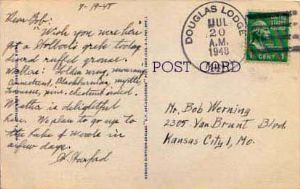 7-19-48
Dear Bob:
Wish you were here
got a Wilson's today
heard ruffed grouse.
Warblers:
Canada, Blackburnian, myrtle,
pine, chestnut sided.
Weather is delightful
here. We plan to go up to
the lake & woods in
a few days.
DOUGLAS LODGE
JUL
20
A.M.
1948
MINN.
1 CENT 1
POST CARD
Mr. Bob Werning
2305 Van Brunt Blvd.
Kansas City 1, Mo.